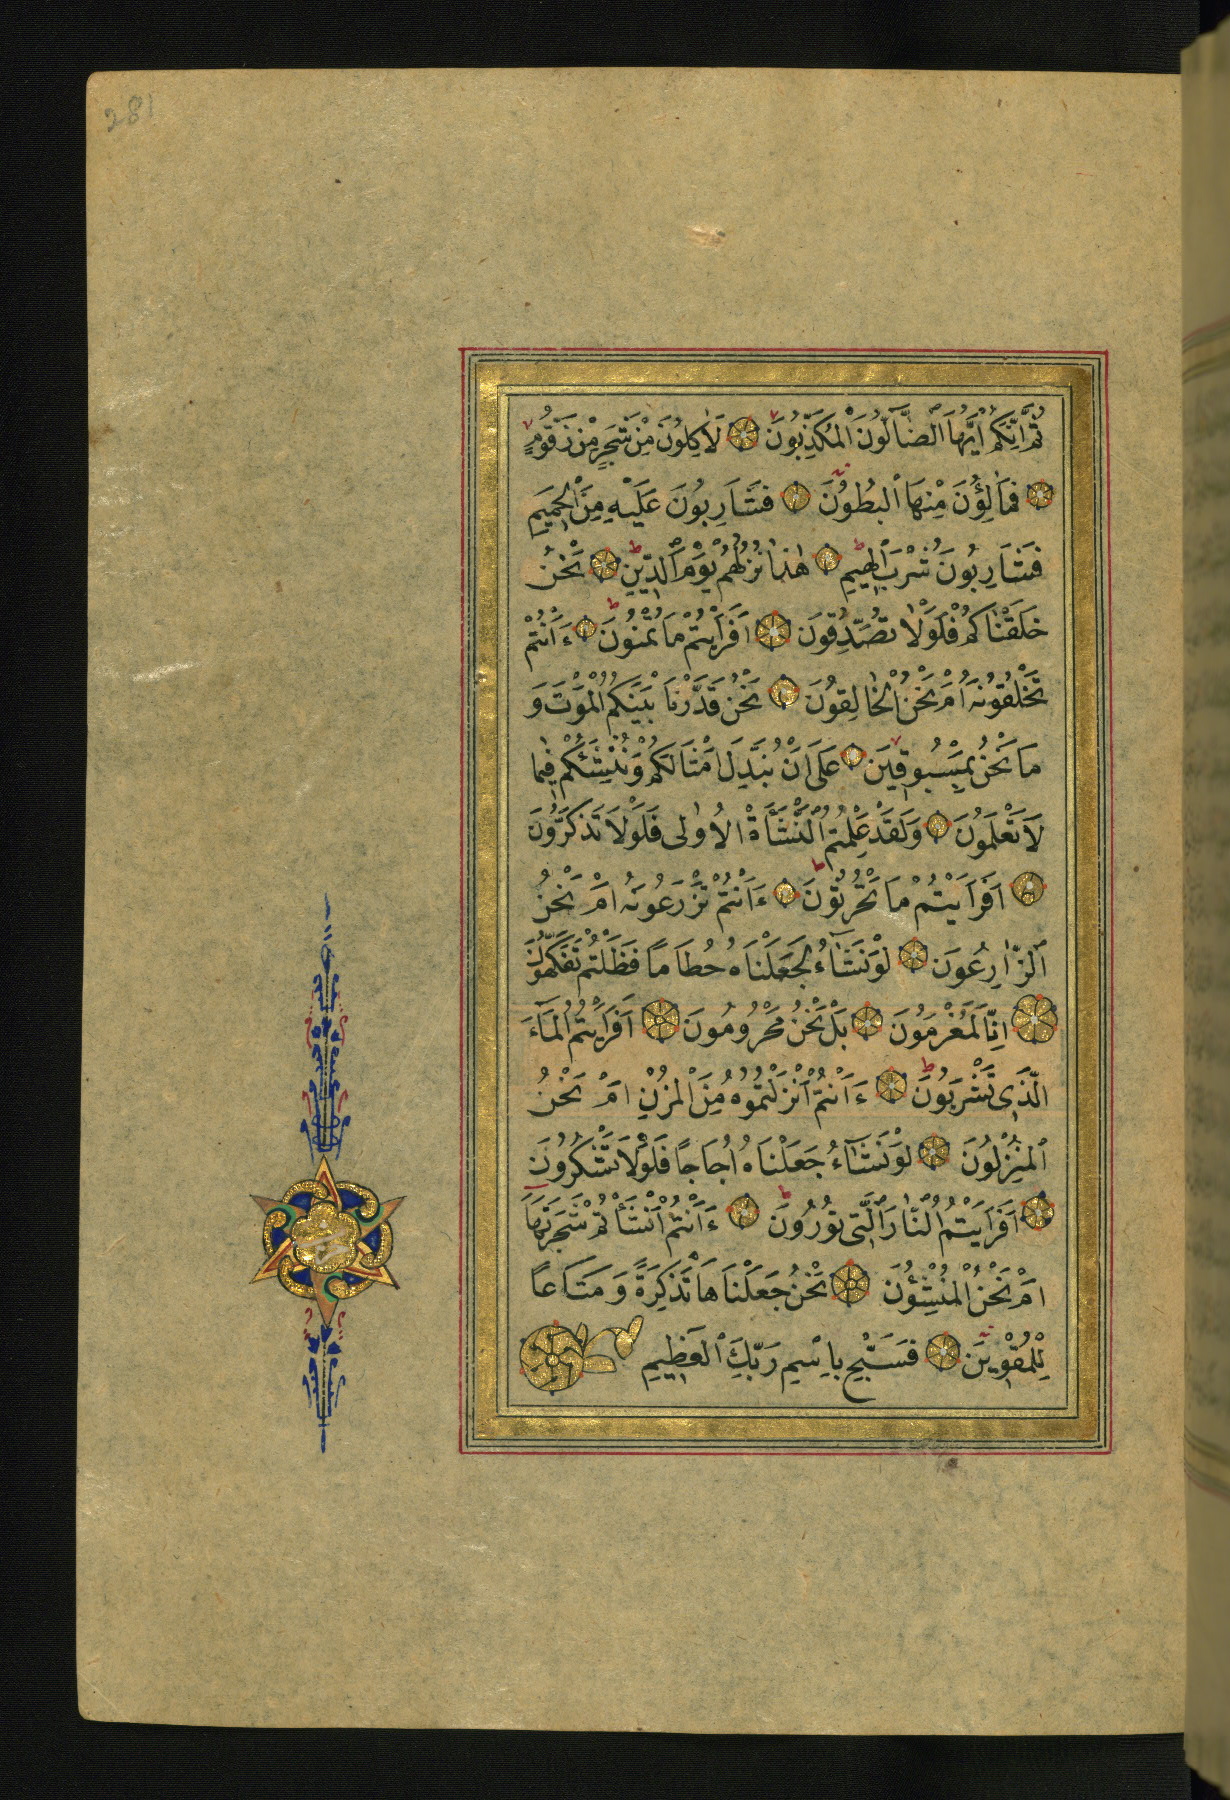 281
ثُمَّ اِنَّكُمْ اَيُّهَا الضَّآلُّونَ الْمُكَذِّبُونَ لَاٰكِلُونَ مِنْ شَجَرٍ مِنْ زَقُّومٍ
فَمَالِؤُنَ مِنْهَا الْبُطُونَ فَشَارِبُونَ عَلَيْهِ مِنَ الْحَمِيمِ
فَشَارِبُونَ شُرْبَ الْهِيمِ هٰذَا نُزُلُهُمْ يَوْمَ الدِّينِ نَحْنُ
خَلَقْنَاكُمْ فَلَوْلَا تُصَدِّقُونَ اَفَرَاَيْتُمْ مَا تُمْنُونَ ءَاَنْتُمْ
تَخْلُقُونَهُ اَمْ نَحْنُ الْخَالِقُونَ نَحْنُ قَدَّرْنَا بَيْنَكُمُ الْمَوْتَ وَ
مَا نَحْنُ بِمَسْبُوقِينَ عَلَى اَنْ نُبَدِّلَ اَمْثَالَكُمْ وَنُنْشِئَكُمْ فِيمَا
لَا تَعْلَمُونَ وَلَقَدْ عَلِمْتُمُ النَّشْاَةَ الْاُولٰى فَلَوْلَا تَذَكَّرُونَ
اَفَرَاَيْتُمْ مَا تَحْرُثُونَ ءَاَنْتُمْ تَزْرَعُونَهُ اَمْ نَحْنُ
الزَّارِعُونَ لَوْ نَشَآءُ لَجَعَلْنَاهُ حُطَامًا فَظَلْتُمْ تَفَكَّهُونَ
اِنَّا لَمُغْرَمُونَ بَلْ نَحْنُ مَحْرُومُونَ اَفَرَاَيْتُمُ الْمَآءَ
الَّذِى تَشْرَبُونَ ءَاَنْتُمْ اَنْزَلْتُمُوهُ مِنَ الْمُزْنِ اَمْ نَحْنُ
الْمُنْزِلُونَ لَوْ نَشَآءُ جَعَلْنَاهُ اُجَاجًا فَلَوْلَا تَشْكُرُونَ
اَفَرَاَيْتُمُ النَّارَ الَّتِى تُورُونَ ءَاَنْتُمْ اَنْشَأْتُمْ شَجَرَتَهَا
اَمْ نَحْنُ الْمُنْشِؤُنَ نَحْنُ جَعَلْنَاهَا تَذْكِرَةً وَمَتَاعًا
لِلْمُقْوِينَ فَسَبِّحْ بِاسْمِ رَبِّكَ الْعَظِيمِ